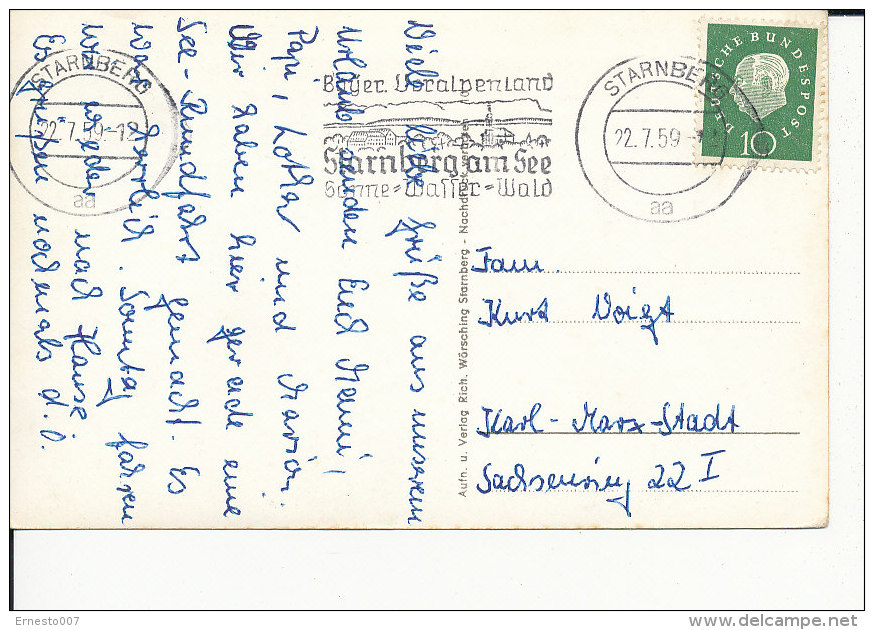 Viele liebe Grüße aus unserem
Urlaub senden Euch Mammi,
Papi, Lothar und Marion.
Wir haben hier gerade eine
See-Rundfahrt gemacht. Es
war herrlich. Sonntag fahren
wir wieder nach Hause.
Es grüßen nochmals d. O.
STARNBERG
22.7.59-12
aa
Bayer. Voralpenland
Starnberg am See
Sonne=Wasser=Wald
STARNBERG
22.7.59-
aa
DEUTSCHE BUNDESPOST
10
Aufn. u. Verlag Rich. Wörsching Starnberg - Nachdruck verboten
Fam.
Kurt Voigt
Karl-Marx-Stadt
Sachsenring 22 I
Ernesto007
delcampe.net